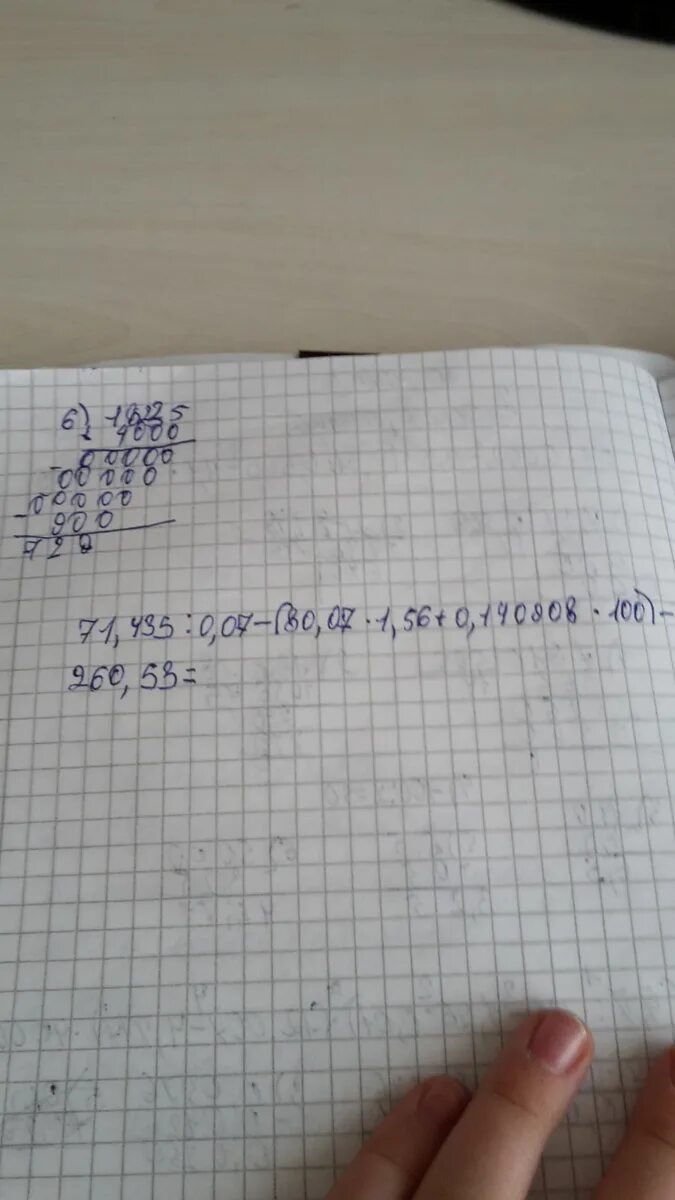 6) 1825
4000
00000
00000
00000
900
728
71,435:0,07-(80,07·1,56+0,140808·100)-
260,53=